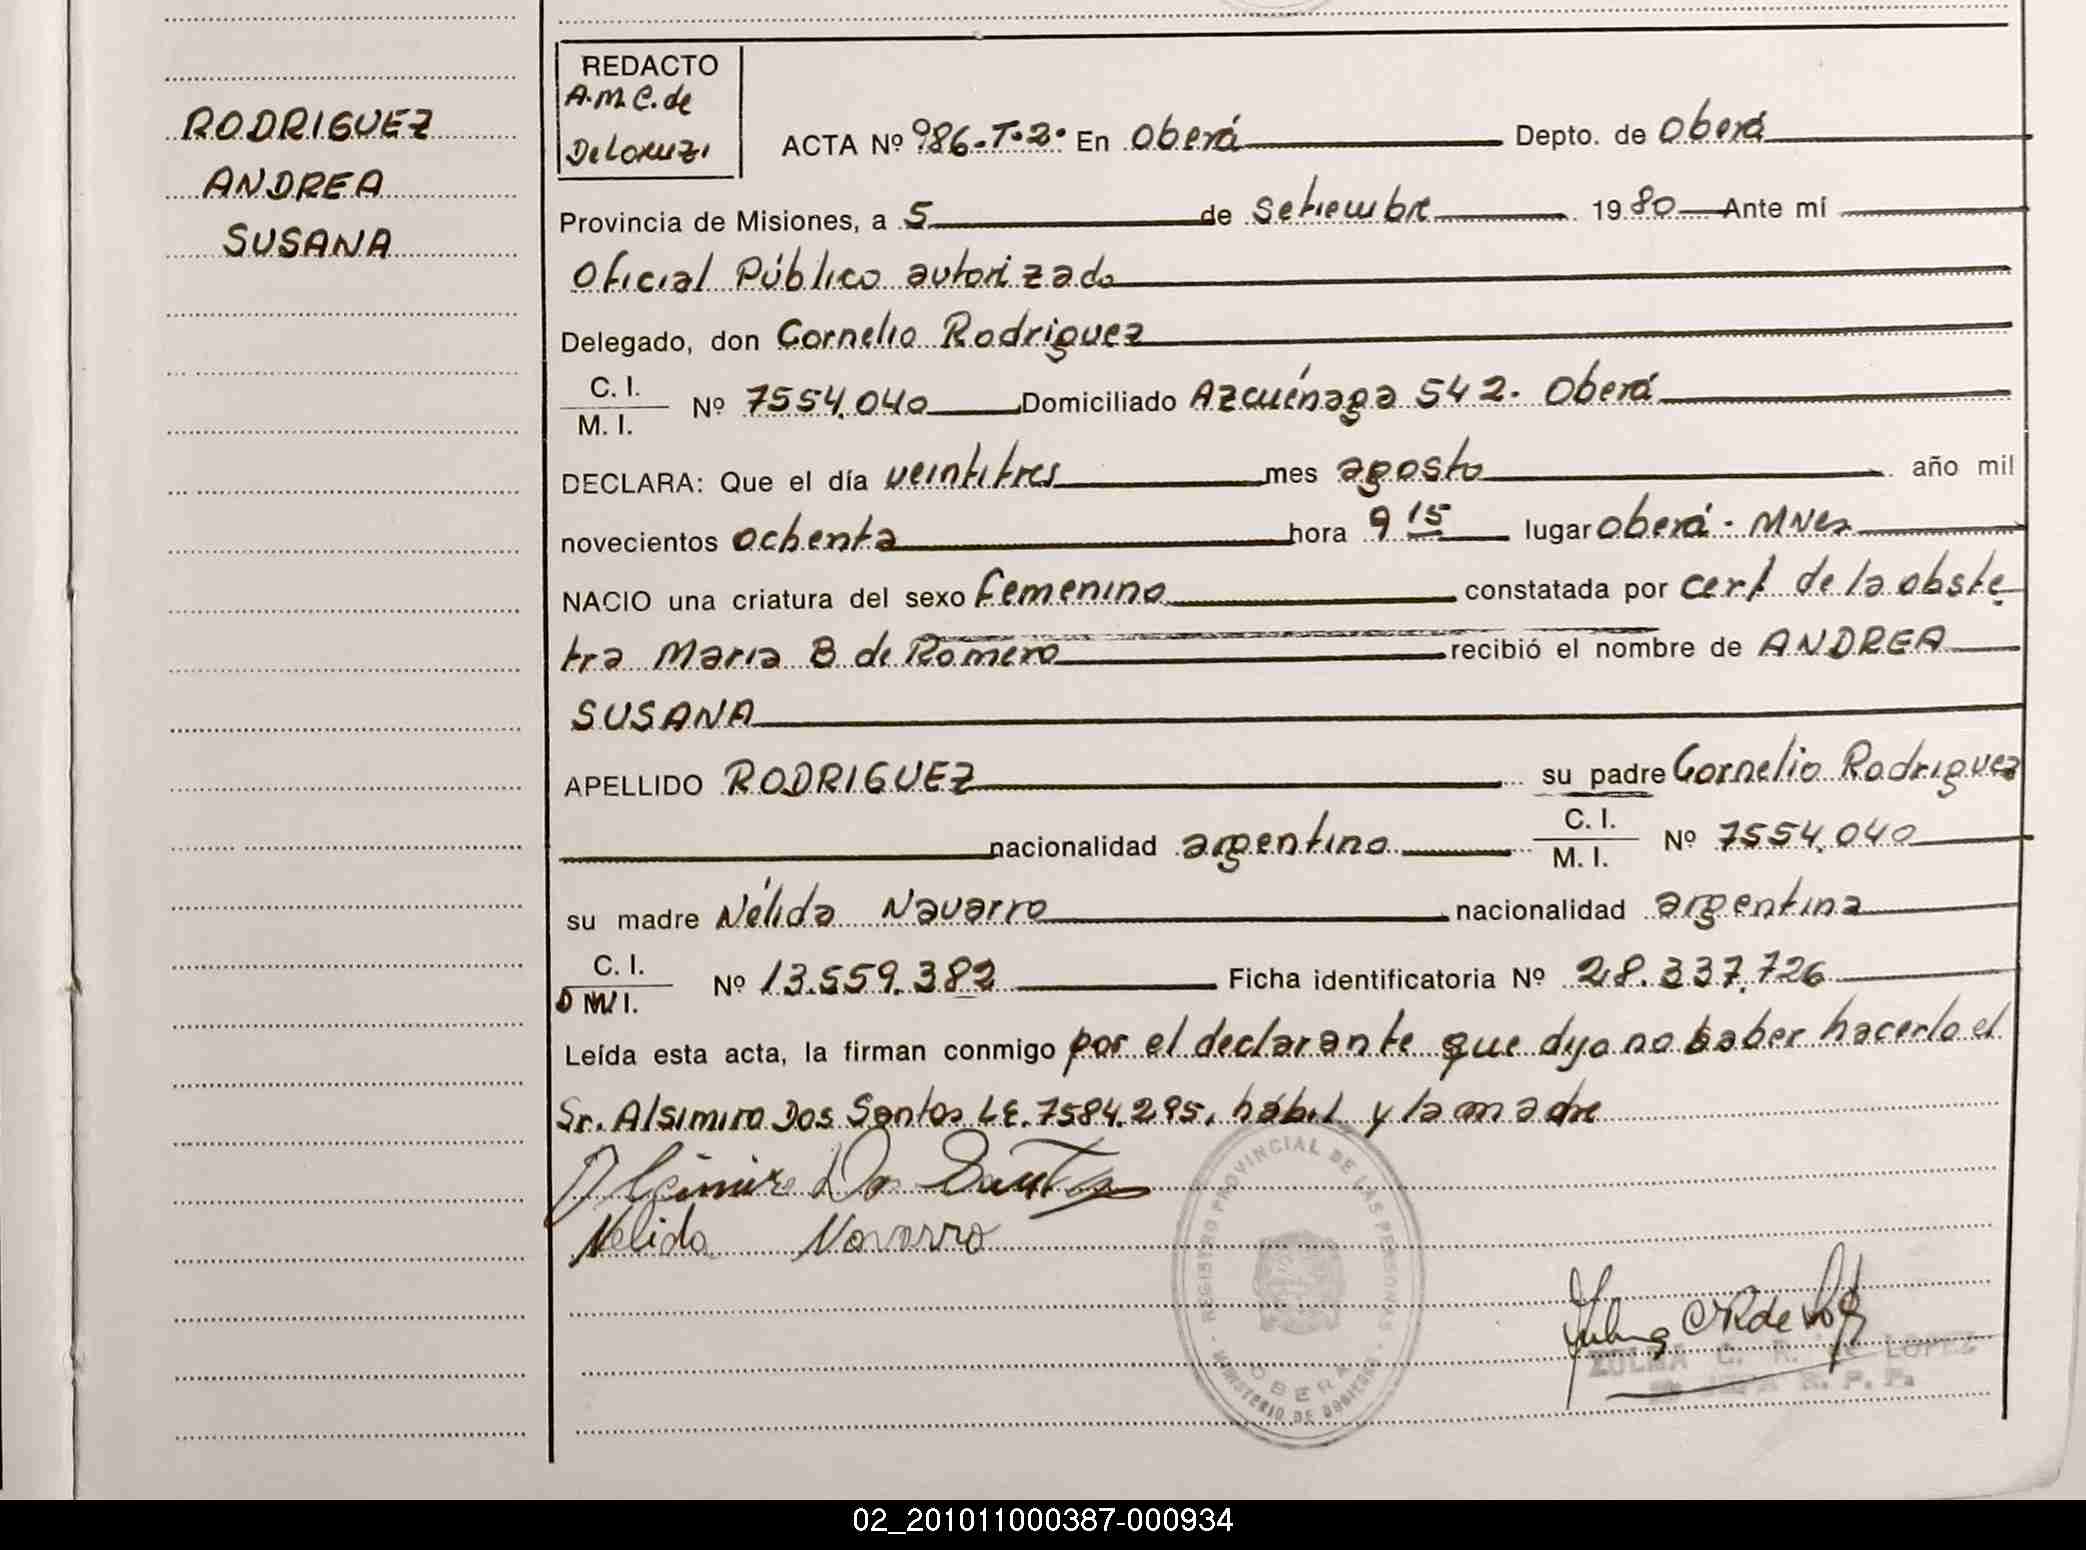 RODRIGUEZ
ANDREA
SUSANA
REDACTO
A.M.C. de
ACTA Nº 986-T.2. En Oberá Depto. de Oberá
Provincia de Misiones, a 5 de Setiembre 1980 Ante mí
Oficial Público autorizado
Delegado, don Cornelio Rodriguez
C. I.
M. I. Nº 7554.040 Domiciliado Azcuénaga 542. Oberá
DECLARA: Que el día veintitres mes agosto año mil
novecientos ochenta hora 9 15 lugar Oberá - Mnes
NACIO una criatura del sexo femenino constatada por cert. de la obste
tra Maria B de Romero recibió el nombre de ANDREA
SUSANA
APELLIDO RODRIGUEZ su padre Cornelio Rodriguez
nacionalidad argentino C. I. M. I. Nº 7554.040
su madre Nélida Navarro nacionalidad argentina
C. I.
D M I. Nº 13.559.382 Ficha identificatoria Nº 28.337.726
Leída esta acta, la firman conmigo por el declarante que dijo no saber hacerlo el
Sr. Alsimiro Dos Santos L.E. 7584.295, hábil y la madre
Alcimiro Dos Santos
Nelida Navarro
REGISTRO PROVINCIAL DE LAS PERSONAS
OBERA
MINISTERIO DE GOBIERNO
ZULMA C. R. de LOPEZ
02_201011000387-000934